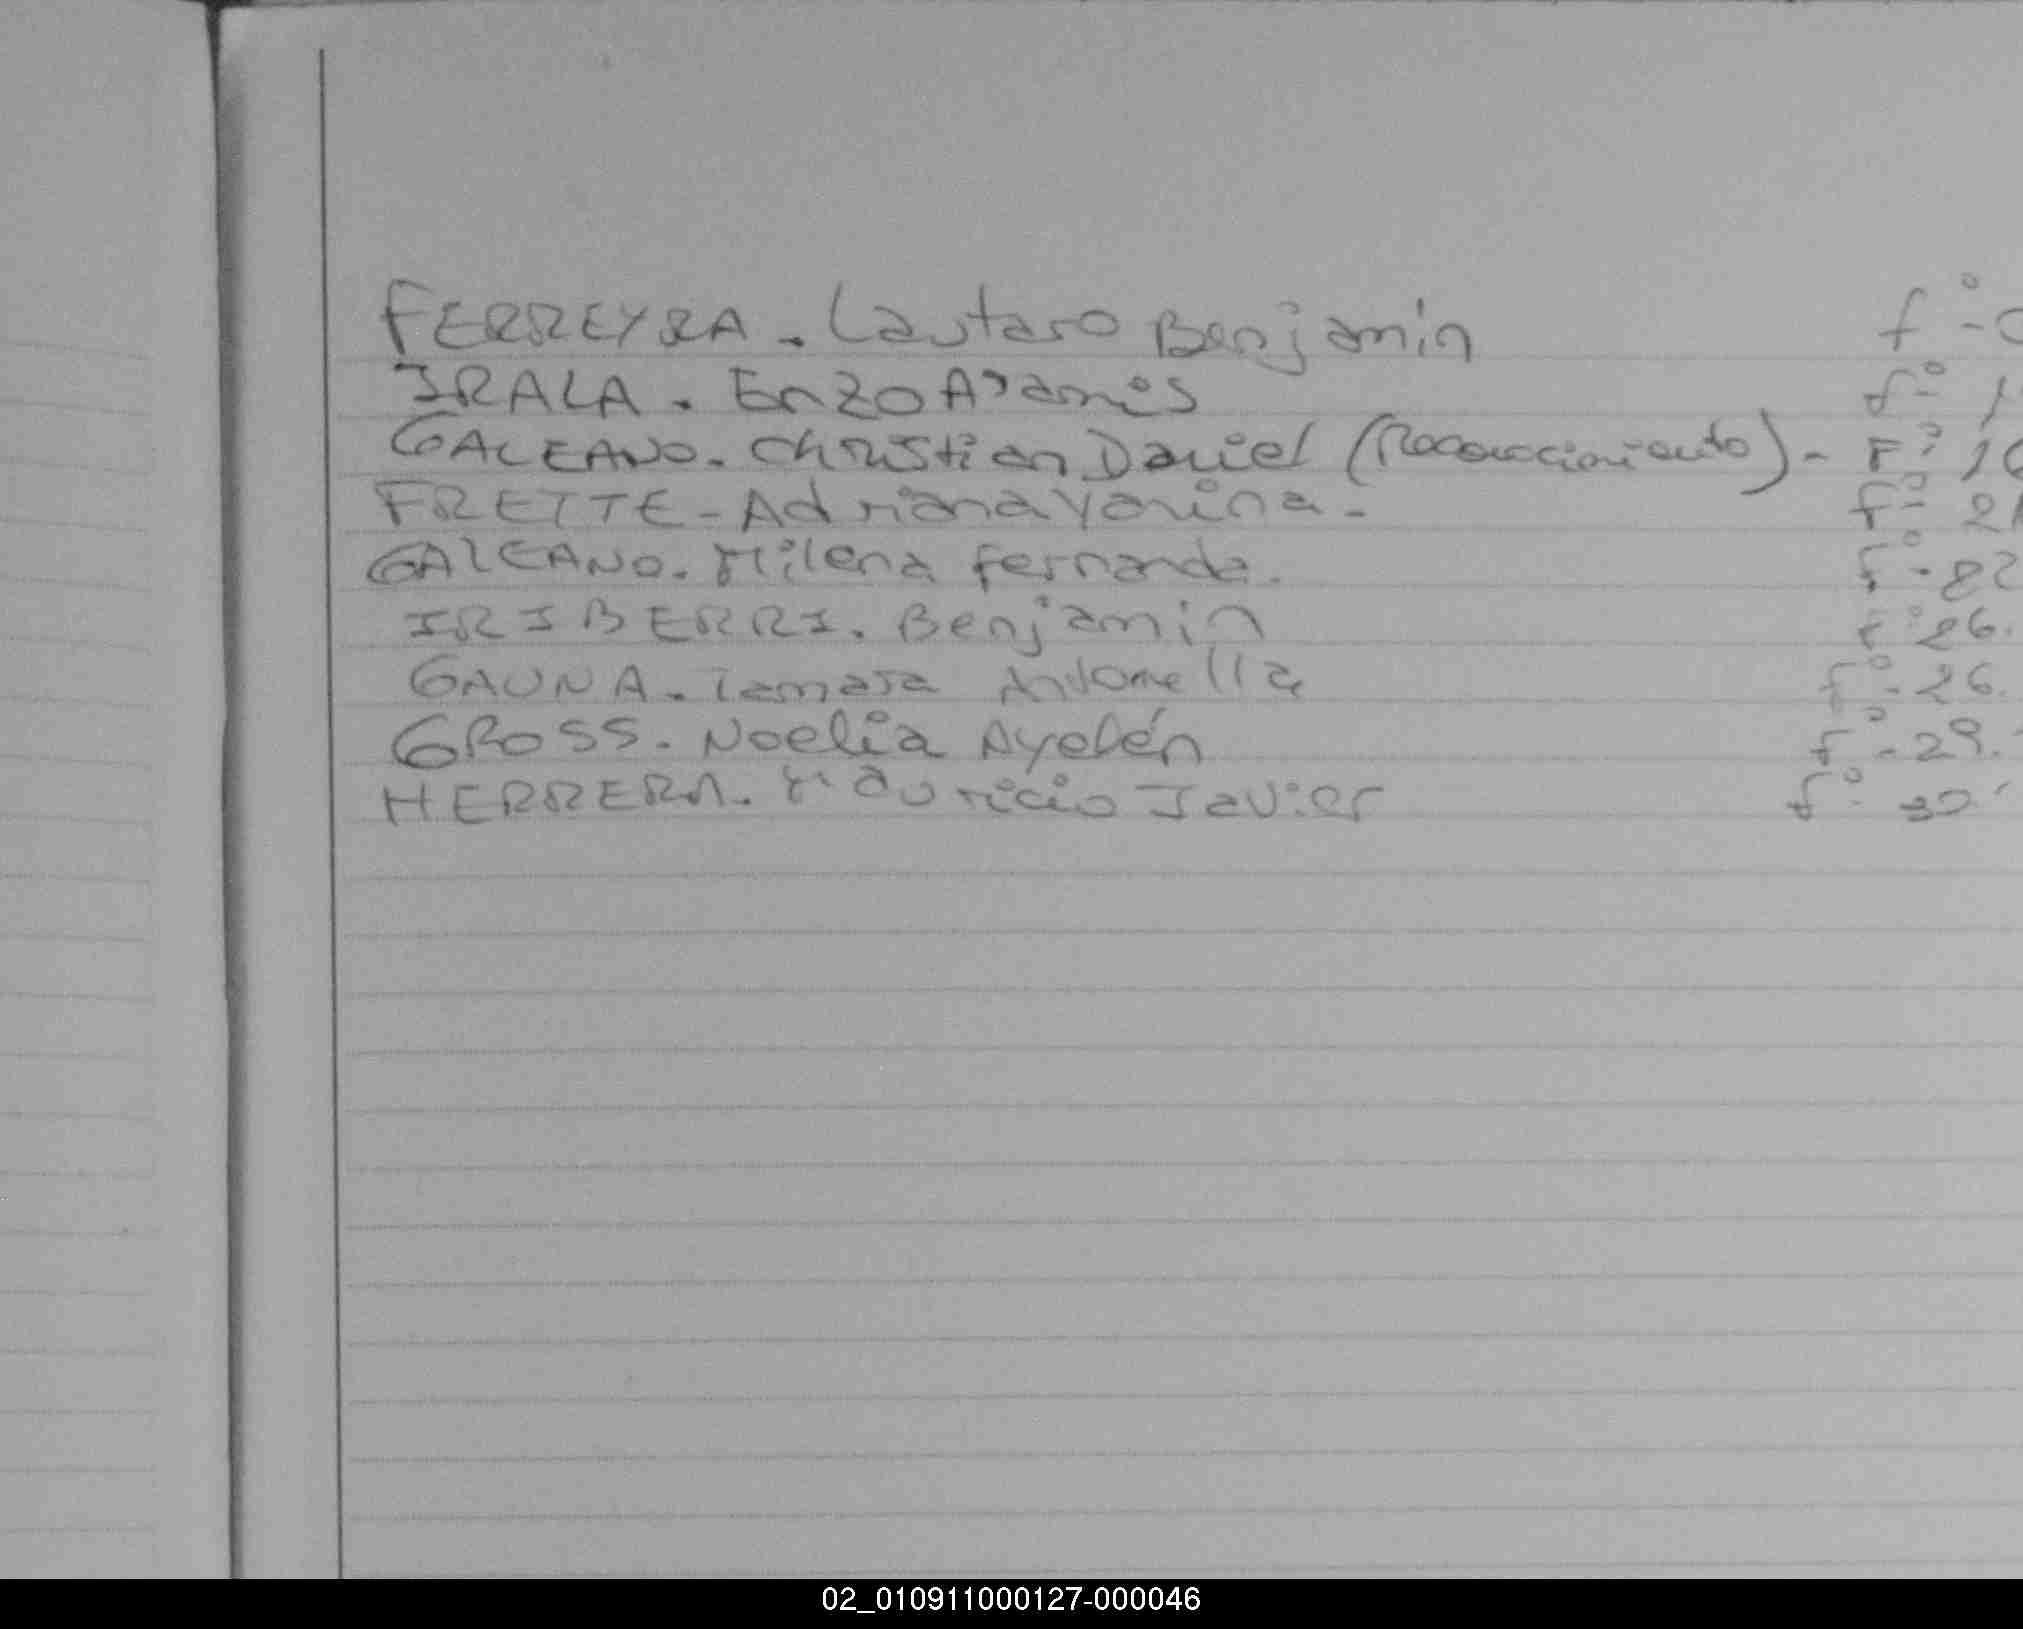 FERREYRA. Lautaro Benjamín f°-
IRALA. Enzo f°-
GALEANO. Christian Daniel (Reconocimiento)- F°
FRETTE- Adriana Yanina.- f°-
GALEANO. Milena Fernanda. f°-82
IRIBERRI. Benjamin f°26.
GAUNA. Tamara Antonella f°-26.
GROSS. Noelia Ayelén f°-29.
HERRERA. Mauricio Javier f°- 30.
02_010911000127-000046